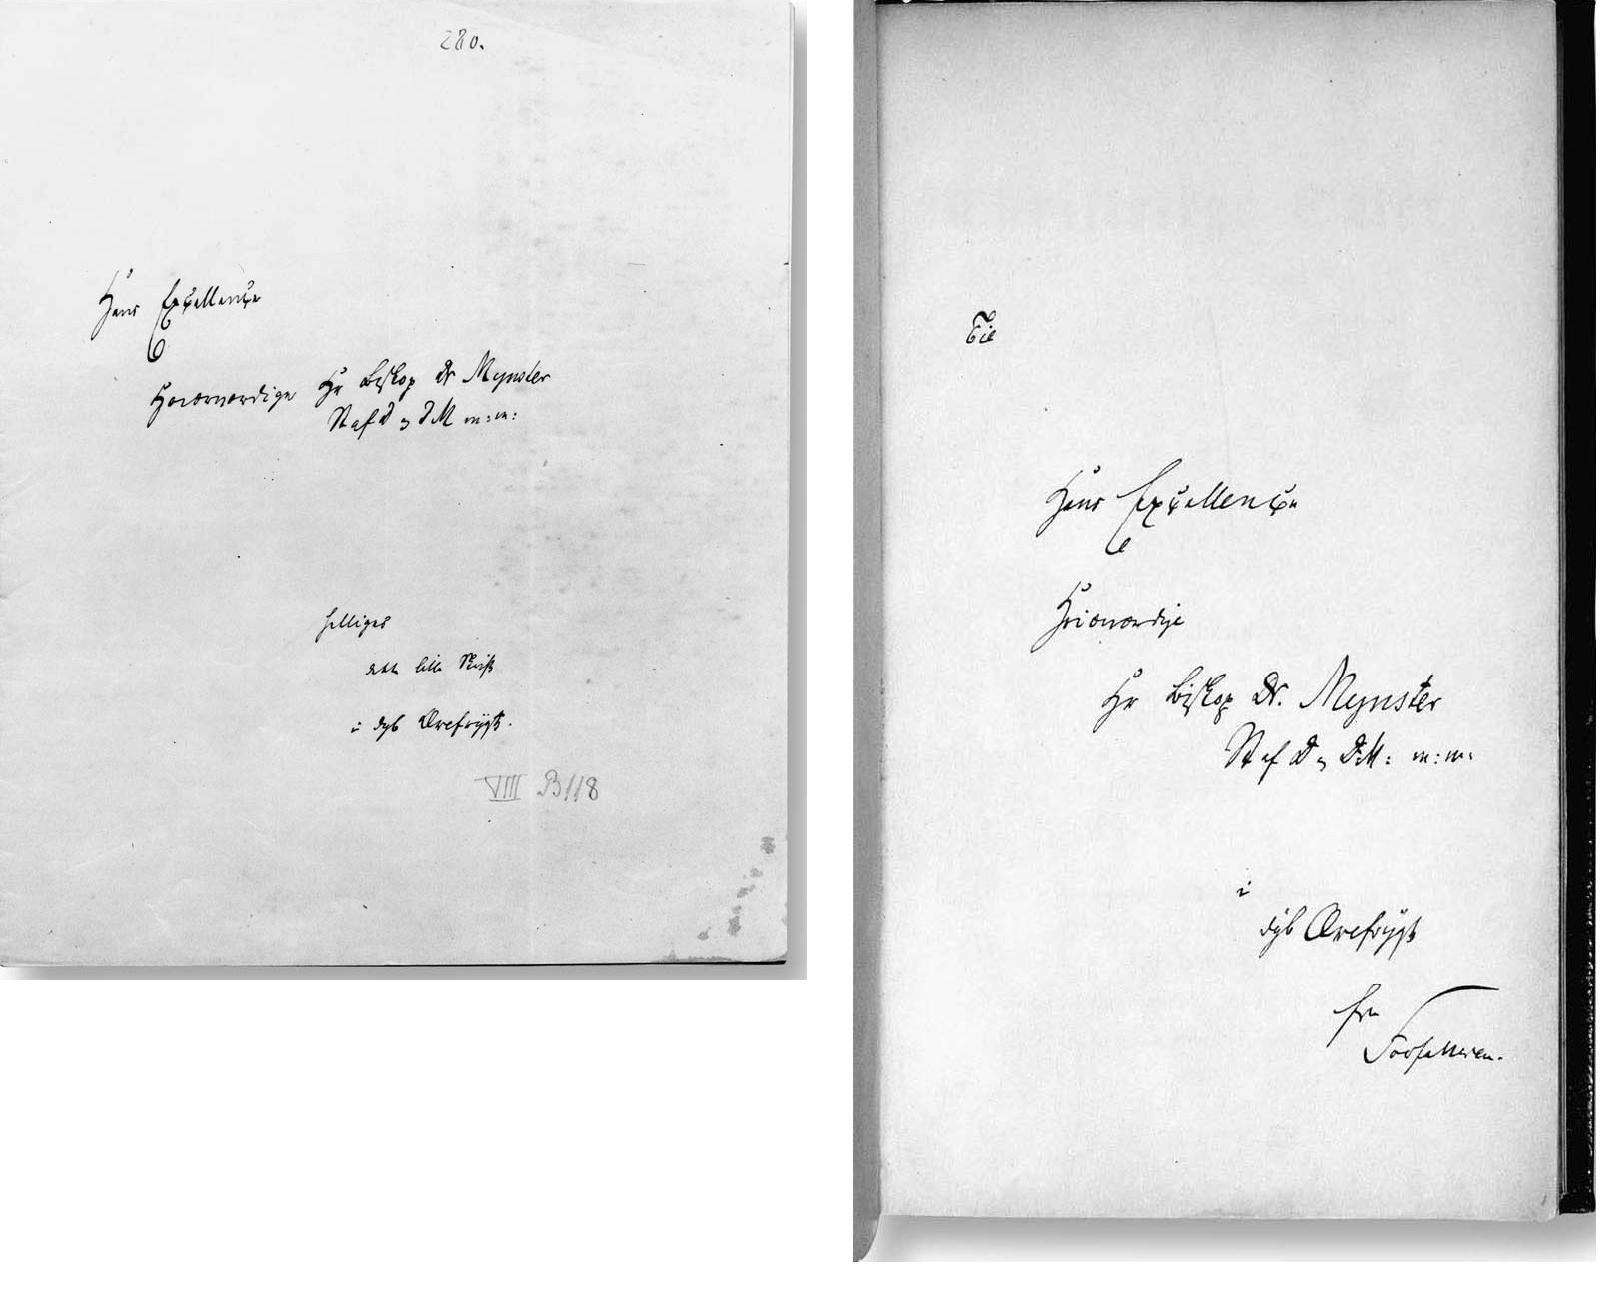 280.
Hans Excellence
Høiærværdige Hr Biskop Dr Mynster
St af D og DM m:m:
helliges
dette lille Skrift
i dyb Ærefrygt.
VIII B 118
Til
Hans Excellence
Høiærværdige
Hr Biskop Dr. Mynster
St af D og DM: m:m:
i
dyb Ærefrygt
fra
Forfatteren.